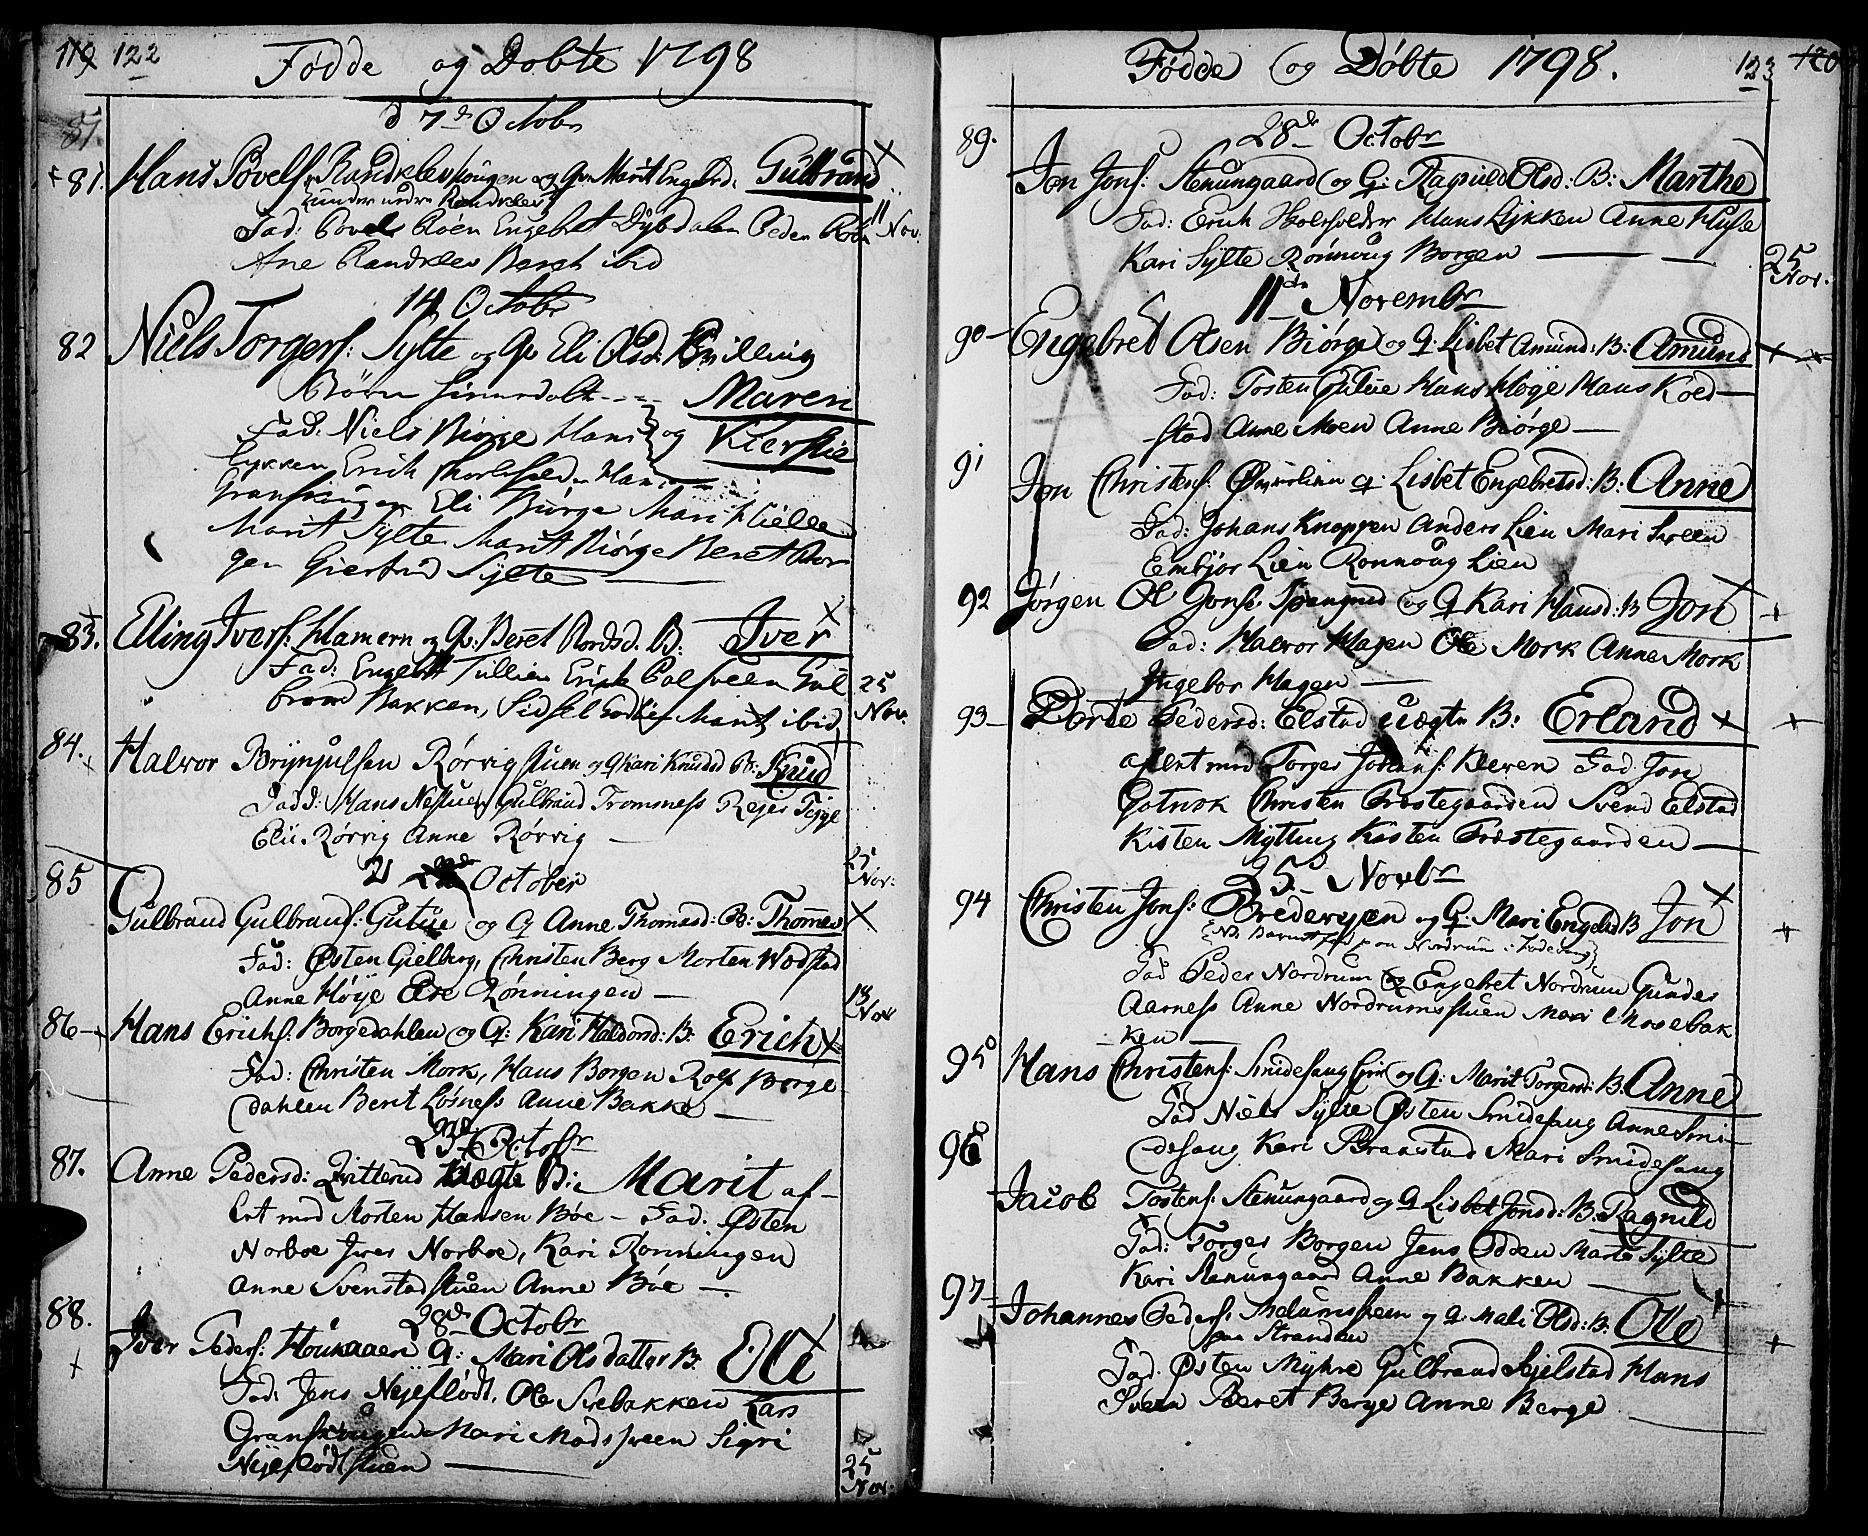 119 122 Fødde og Døbte 1798
d 7de Octobr
81.
81. Hans Povels. Randklevhougen og Q. Marit Engebrd. Gulbrand
under nedre Randklev
Fad: Povel Roen Engebret Dybdalen Peder Roen 11 Nov.
Ane Randklev Berit ibid
14 Octobr
82 Niels Torgers: Sylte og Q. Eli Olsd: Tvilling
Børn hiemdøbt Maren
Fad: Niels Biørge Hans og Kierstie
Lykken Erich Skoleholder Hans
Eli Biørge Mari Kielle
Marit Sylte Marit Biørge Beret Bor
gen Giertrud Sylte
83. Elling Ivers: Hamern og Q: Beret Pordsd. B: Iver
Fad: Engebret Tullien Erich Bolsveen Gul
brand Bakken, Sidsel Marit ibid 25 Nov.
84. Halvor Brynjulsen Rørvigstuen og Q Kari Knudsd B: Knud
Fadd: Hans Nestuen Gulbrand Tromness Rejer Tejge
Elii Rørvig Anne Rørvig
21 October 25 Nov:
85 Gulbrand Gulbrans: Gutue og Q Anne Thomasd: B: Thomes
Fad: Østen Gielberg, Christen Berg Morten Wodstad
Anne Høye Ane Rønningen
86 Hans Erichs: Borgedahlen og Q: Kari Haldorsd: B: Erich 18 Nov
Fad: Christen Mork, Hans Borgen Rolf Borge
dahlen Berit Løsness Anne Bakke
23de Octobr
87. Anne Pedersd: Qvitterud Uægte B: Marit af-
let med Morten Hansen Bøe - Fad: Østen
Norboe Iver Norboe, Kari Rønningen
Anne Svenstadstuen Anne Bøe
28de Octobr
88. Iver Peders: Q: Mari Olsdatter B: Oli
Fad: Jens Nejeflødt. Ole Svebakken Lars
Mari Modsveen Sigri
Nejeflødtstuen 25 Nov.
Fødde og Døbte 1798. 123 120
28de Octobr
89. Jon Jons: Stenungaard og Q: Ragnild Olsd: B: Marthe
Fad: Erich Skoleholder Hans Lykken Anne
Kari Sylte Rønnoug Borgen 25 Nov.
11de Novembr
90 Engebret Olsen Biørge og Q: Lisbet Amund: B: Amund
Fad: Tosten Gutue Hans Høye Hans Koed
stad Anne Moen Anne Biørge
91 Jon Christens: Q: Lisbet Engebretsd: B: Anne
Fad: Johans Knappen Anders Lien Mari Sveen
Embjør Lien Rønnoug Lien
92 Jørgen Ol Jonse og Q Kari Hansd: B Jon
Fad: Halvor Hagen Ole Mork Anne Mork
Ingebor Hagen
93 Dorte Pedersd: Elstad Uægte B: Erland
aflet med Torger Johans: Kleven Fad: Jon
Christen Præstegaarden Svend Elstad
Kisten Mytting Kisten Præstegaarden
25 Novbr
94 Christen Jons: Bredevejen og Q: Mari Engebd B Jon
NB: Barnet
Fad Peder Nordrum og Engebret Nordrum Gunder
Aarness Anne Nordrumsstuen Mari Mosebak
ken
95 Hans Christens: Smidesang og Q: Marit Torgersd: B: Anne
Fad Niels Sylte Østen Smidesang Anne Smi
desang Kari Braastad Mari Smidesang
96 Jacob Tostens: Stenungaard og Q Lisbet Jonsd: B: Ragnild
Fad: Torger Borgen Jens Odden Marte Sylte
Kari Stenungaard Anne Bakken
97 Johannes Peders: Melumsveen og Q: Mali Olsd: B: Ole
paa Stranden
Fad: Østen Myhre Gulbrand Sejelstad Hans
Sveen Beret Berge Anne Berge